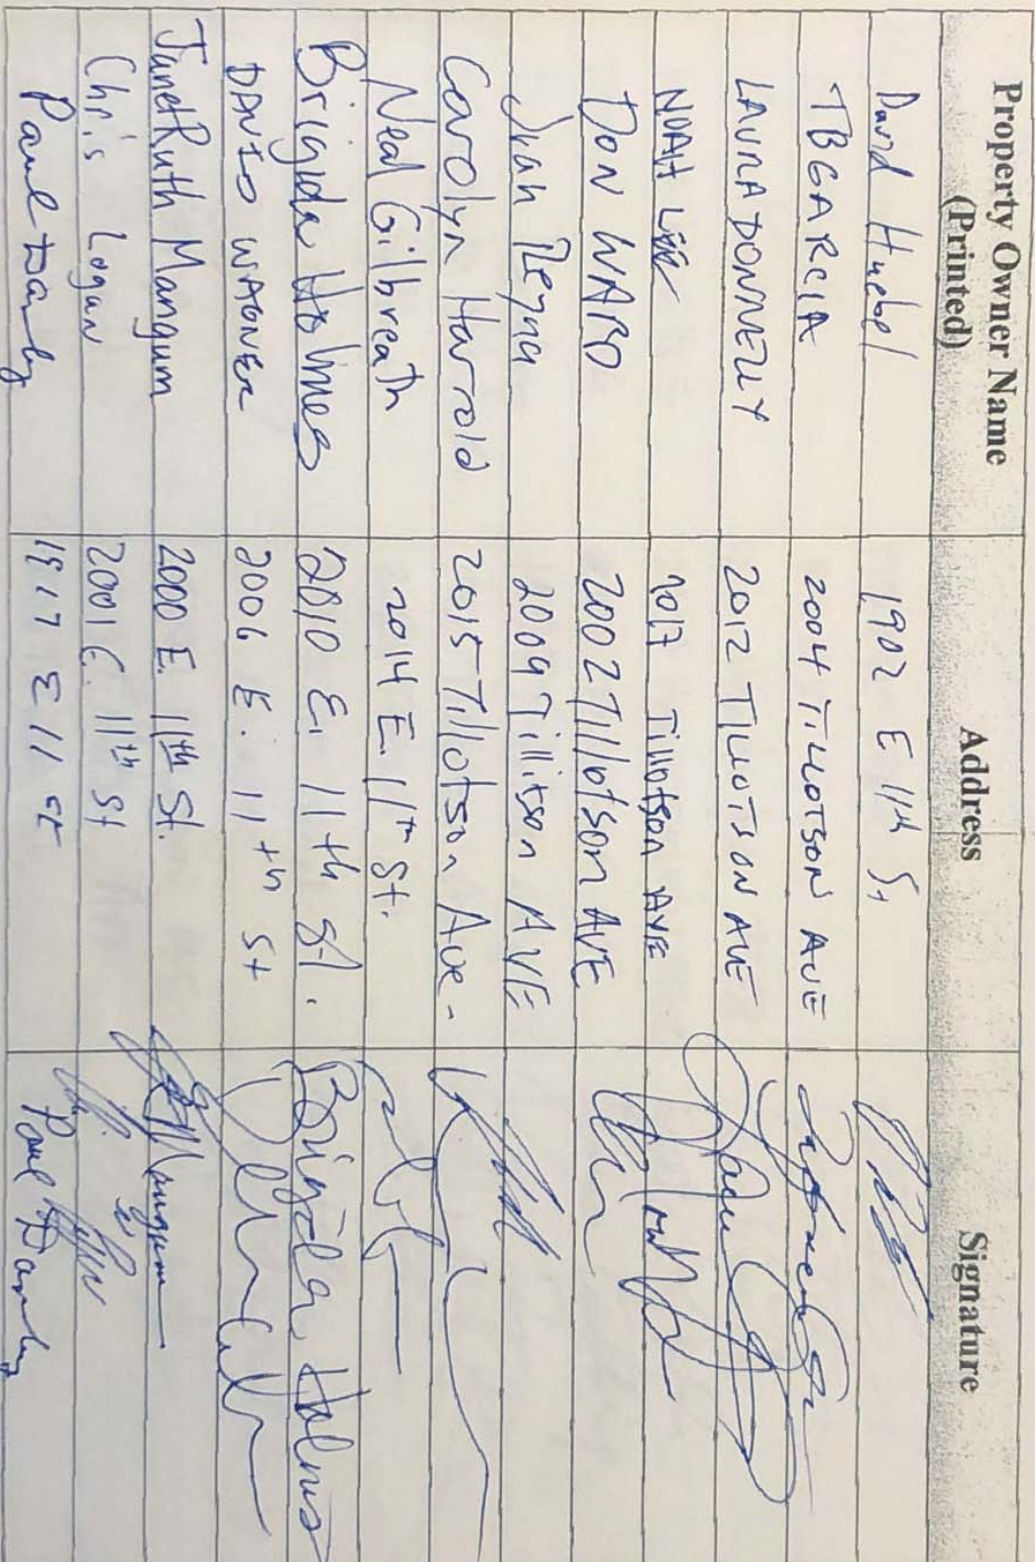 Property Owner Name (Printed) Address Signature
David Huebel 1902 E 11th St
TBGARCIA 2004 TILLOTSON AVE
LAURA DONNELLY 2012 TILLOTSON AVE
NOAH 2017 Tillotson AVE
DON WARD 2002 Tillotson AVE
Reyna 2009 Tillitson AVE
Carolyn Harrold 2015 Tillotson Ave.
Neal Gilbreath 2014 E. 11th St.
Brigida Holmes 2010 E. 11th St. Brigida Holmes
DAVID WAGNER 2006 E. 11th St
JanetRuth Mangum 2000 E. 11th St. Mangum
Chris Logan 2001 E. 11th St
Paul Darby 1917 E 11 St Paul Darby